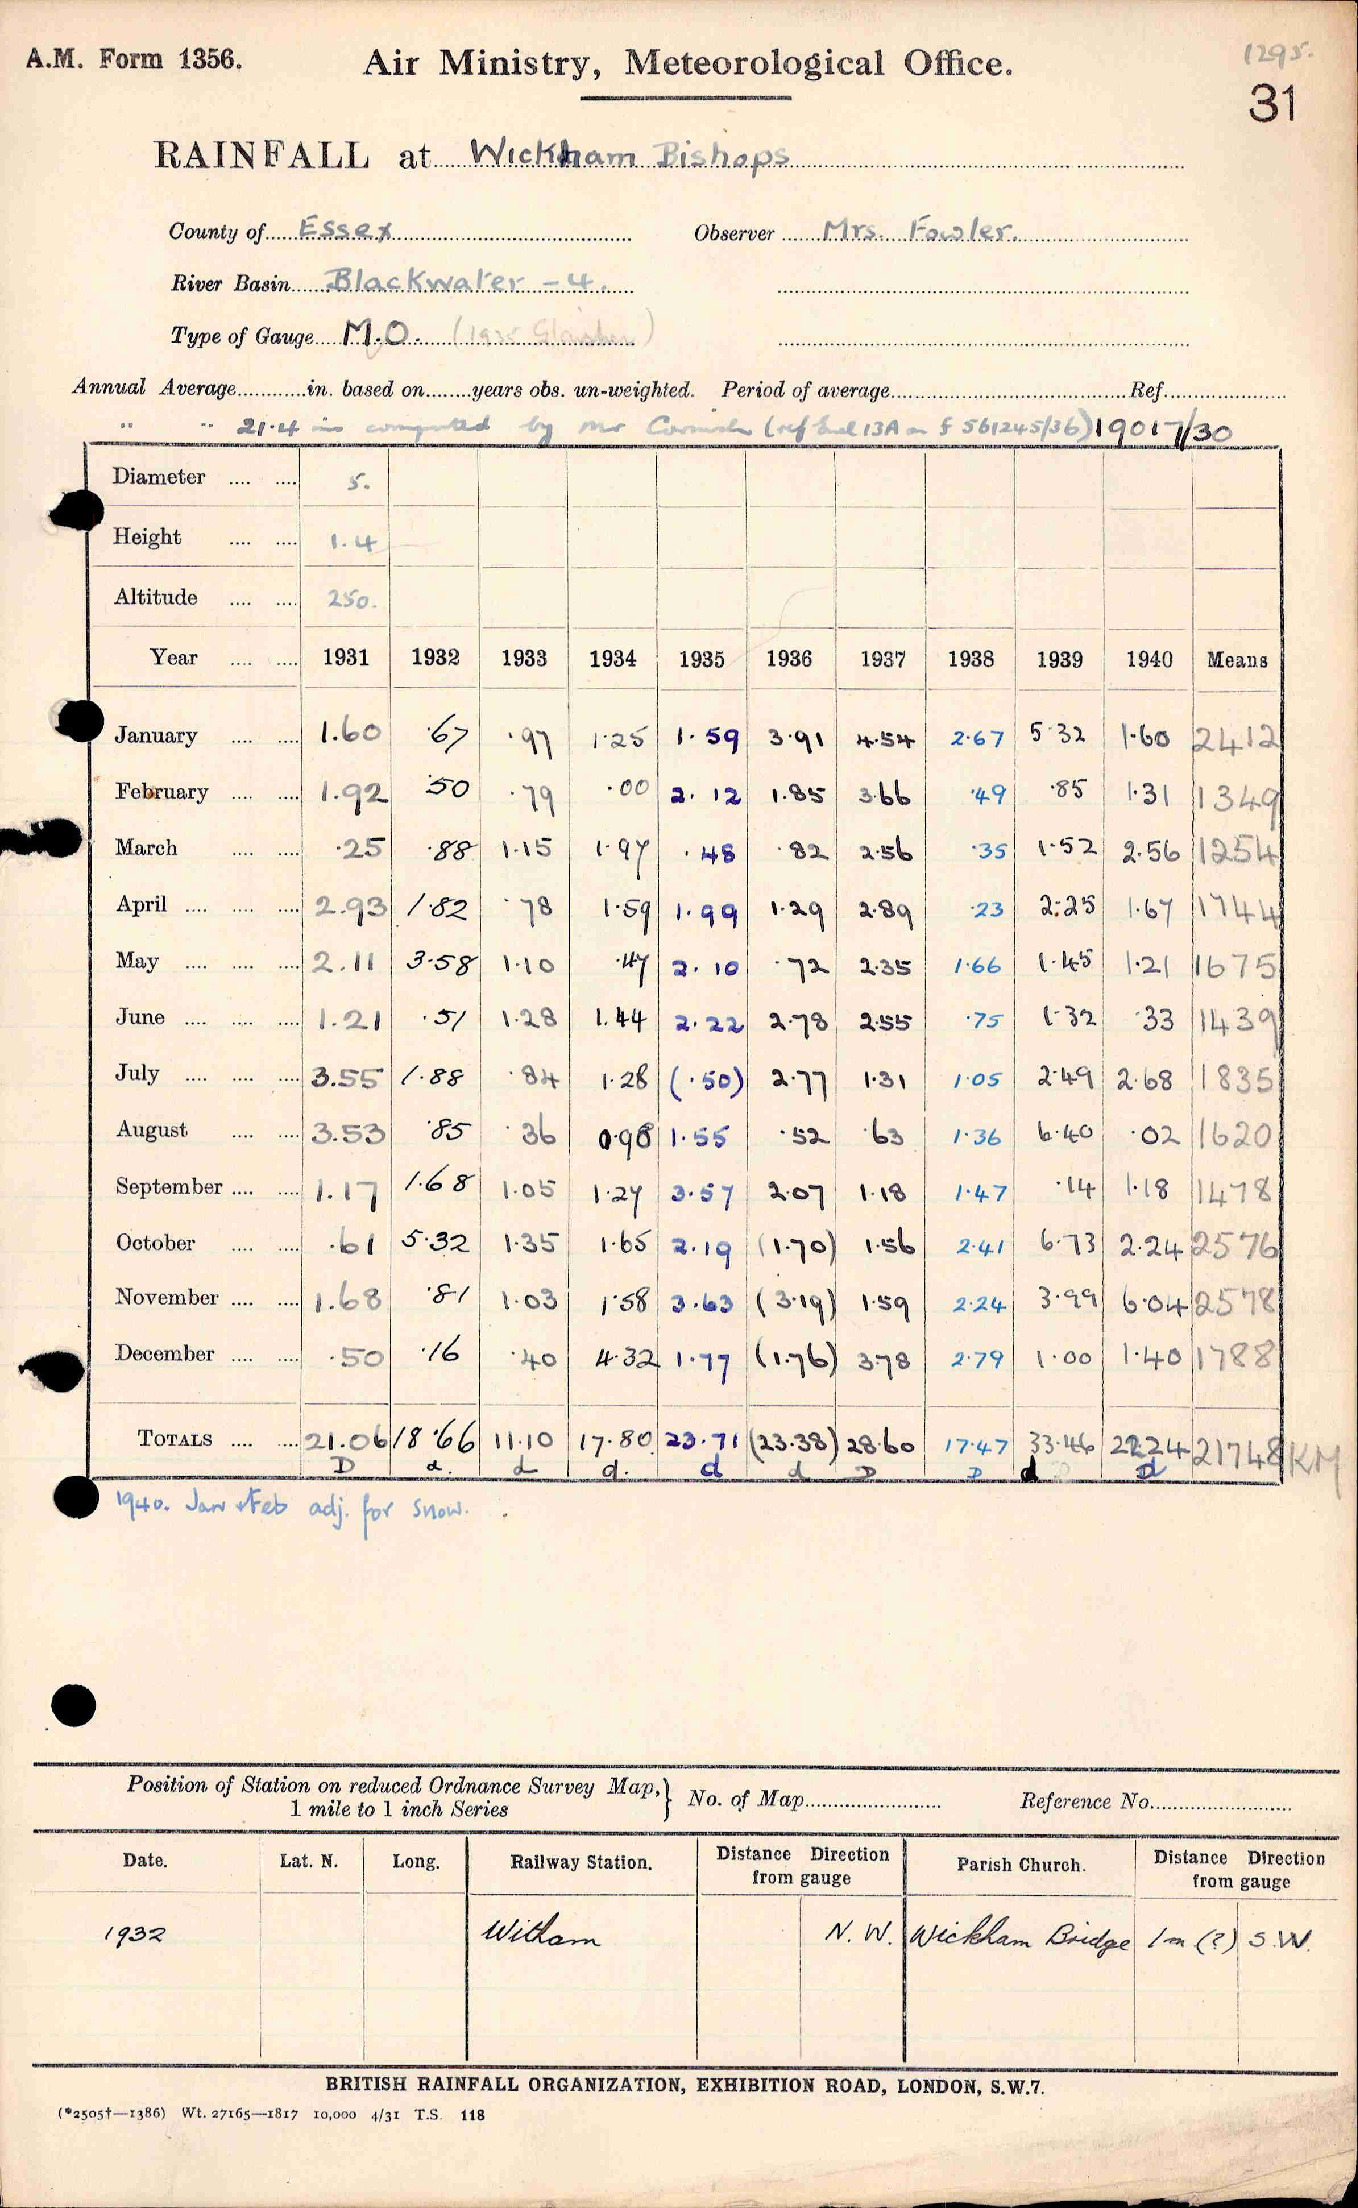 A.M. Form 1356. Air Ministry, Meteorological Office. 1295.
31
RAINFALL at Wickham Bishops
County of Essex Observer Mrs. Fowler.
River Basin Blackwater - 4.
Type of Gauge M.O. (1935 Glaisher)
Annual Average............in. based on........years obs. un-weighted. Period of average............Ref............
" " 21.4 ins computed by Mr Cornish 1901 7/30
Diameter .... .... 5.
Height .... .... 1.4
Altitude .... .... 250.
Year .... .... 1931 1932 1933 1934 1935 1936 1937 1938 1939 1940 Means
January .... .... 1.60 .67 .97 1.25 1.59 3.91 4.54 2.67 5.32 1.60 2412
February .... .... 1.92 .50 .79 .00 2.12 1.85 3.66 .49 .85 1.31 1349
March .... .... .25 .88 1.15 1.97 .48 .82 2.56 .35 1.52 2.56 1254
April .... .... .... 2.93 1.82 .78 1.59 1.99 1.29 2.89 .23 2.25 1.67 1744
May .... .... .... 2.11 3.58 1.10 .47 2.10 .72 2.35 1.66 1.45 1.21 1675
June .... .... .... 1.21 .51 1.28 1.44 2.22 2.78 2.55 .75 1.32 .33 1439
July .... .... .... 3.55 1.88 .84 1.28 (.50) 2.77 1.31 1.05 2.49 2.68 1835
August .... .... 3.53 .85 .36 0.98 1.55 .52 .63 1.36 6.40 .02 1620
September .... .... 1.17 1.68 1.05 1.27 3.57 2.07 1.18 1.47 .14 1.18 1478
October .... .... .61 5.32 1.35 1.65 2.19 (1.70) 1.56 2.41 6.73 2.24 2576
November .... .... 1.68 .81 1.03 1.58 3.63 (3.19) 1.59 2.24 3.99 6.04 2578
December .... .... .50 .16 .40 4.32 1.77 (1.76) 3.78 2.79 1.00 1.40 1788
TOTALS .... .... 21.06 18.66 11.10 17.80 23.71 (23.38) 28.60 17.47 33.46 22.24 21748 KM
D d. d d. d d D D d D d
1940. Jan & Feb adj. for snow.
Position of Station on reduced Ordnance Survey Map,} No. of Map........................ Reference No.........................
1 mile to 1 inch Series
Date. Lat. N. Long. Railway Station. Distance Direction from gauge Parish Church. Distance Direction from gauge
1932 Witham N.W. Wickham Bridge 1m (?) S.W.
BRITISH RAINFALL ORGANIZATION, EXHIBITION ROAD, LONDON, S.W.7.
(*2505†—1386) Wt. 27165—1817 10,000 4/31 T.S. 118